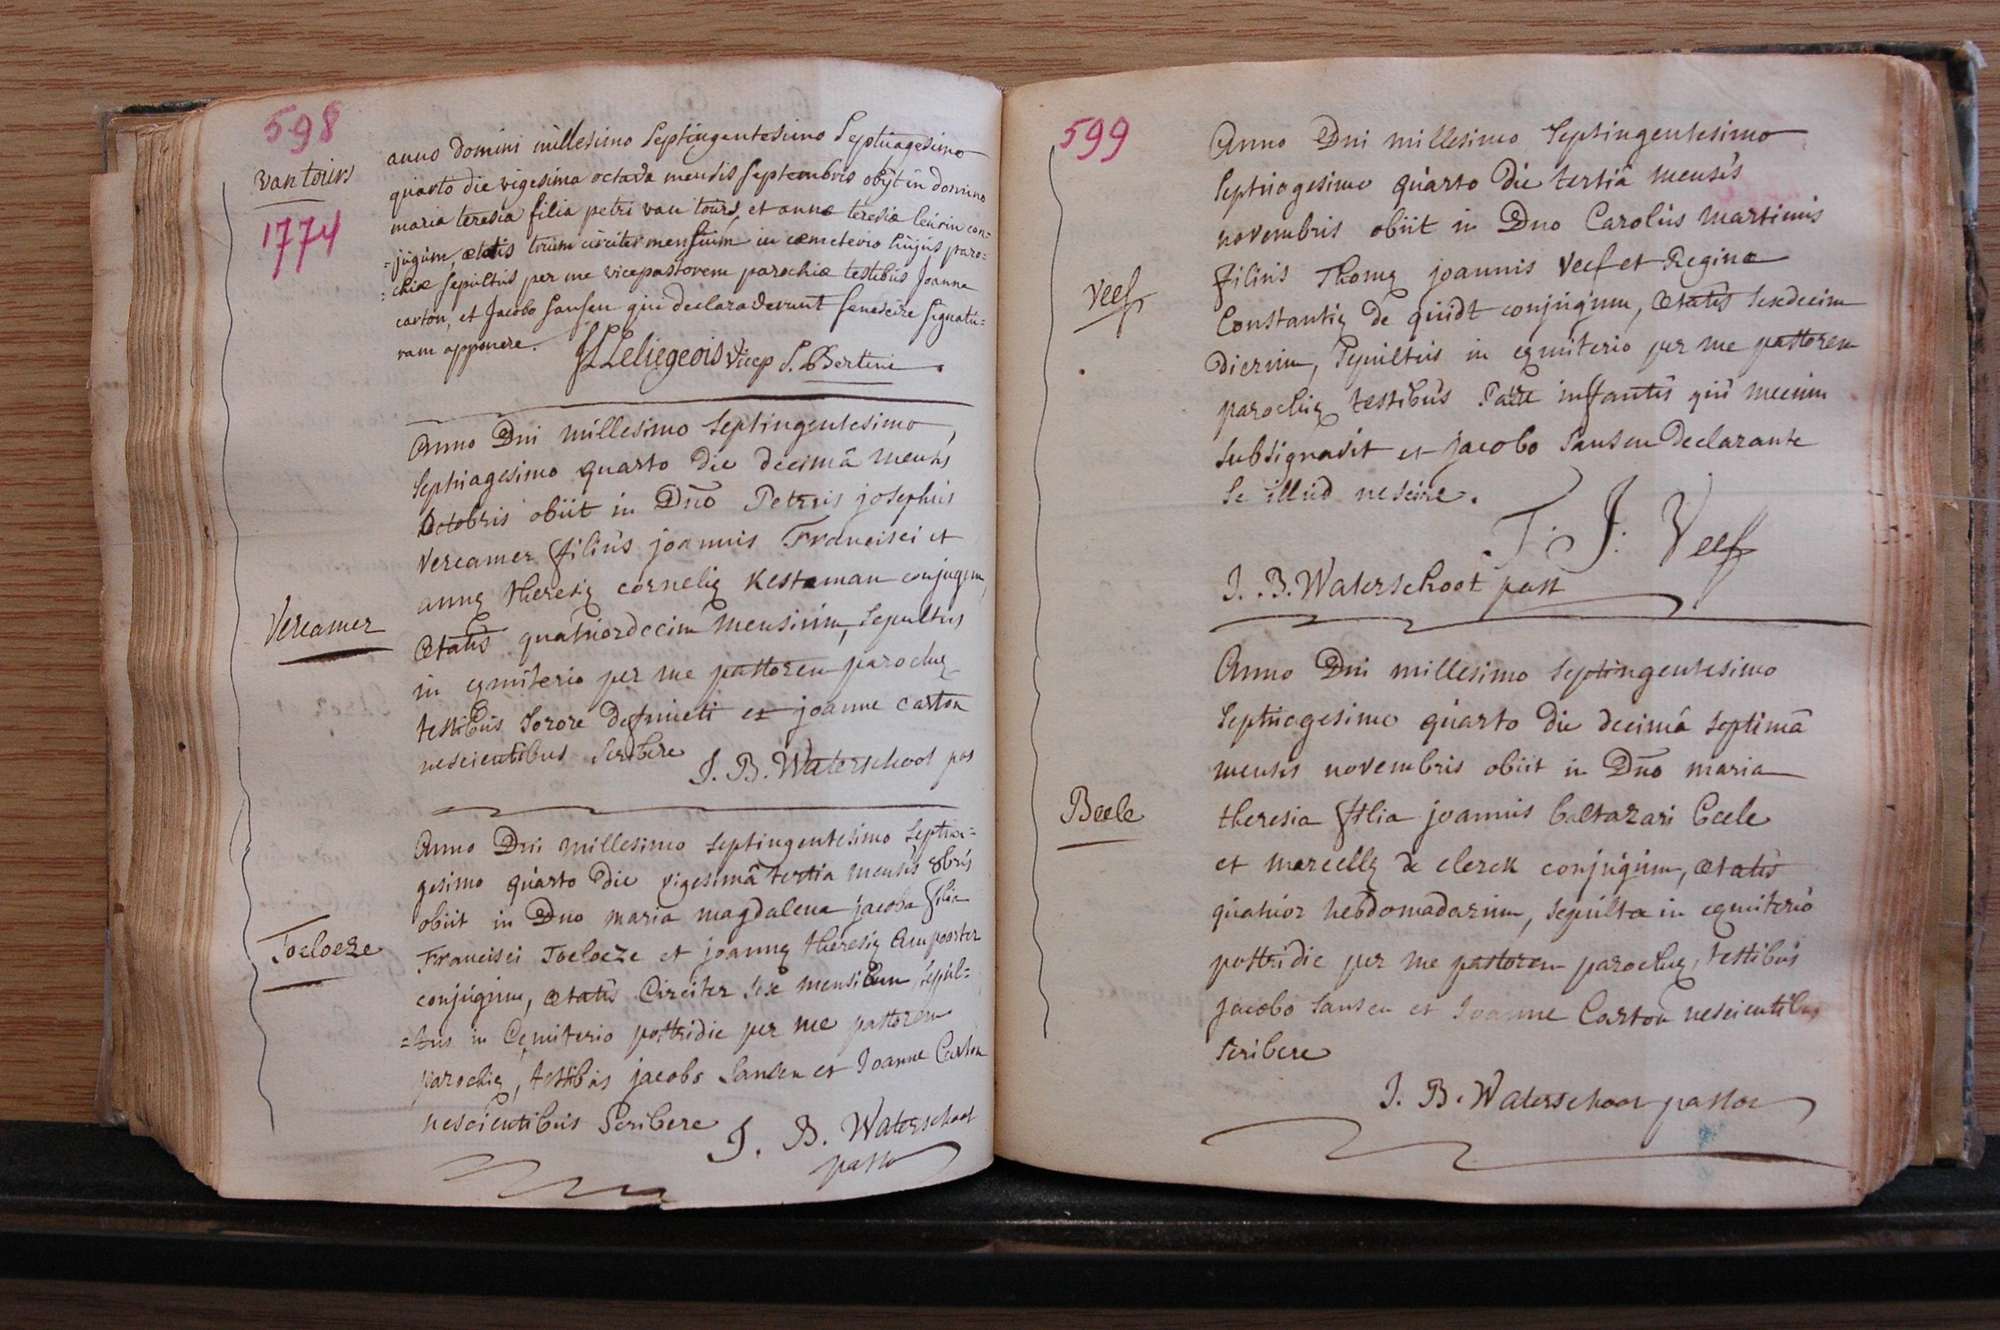 598
van tours
1774
anno domini millesimo Septingentesimo Septuagesimo
quarto die vigesima octava mensis Septembris obÿt in domino
maria teresia filia petri van tours, et annæ teresiæ con-
=jugum, ætatis trium circiter mensium in cœmeterio hujus paro=
=chiæ sepultus per me vicepastorem parochiæ testibus Joanne
carton, et Jacobo Sansen qui declaraverunt se nescire signatu=
ram apponere.
J L Leliegeois vicep S. Bertini
Vercamer
Anno Dni millesimo Septingentesimo
Septuagesimo quarto die decimâ mensis
Octobris obiit in Dno Petrus josephus
vercamer filius joannis Francisci et
annę theresię cornelię Kesteman conjugum,
ætatis quatuordecim mensium, sepultus
in cęmiterio per me pastorem parochię
testibus sorore defuncti et joanne carton
nescientibus scribere
J. B. Waterschoot pas
Toeloeze
Anno Dni millesimo septingentesimo septua=
gesimo quarto die vigesimâ tertia mensis 8bris
obiit in Dno maria magdalena jacoba filia
Francisci Toeloeze et joannę theresię Ampoorter
conjugum, ætatis circiter sex mensium, sepul=
=tus in cęmiterio postridie per me pastorem
parochię, testibus jacobo Sansen et Joanne Carton
nescientibus scribere
J. B. Waterschoot
pastor
599
Veef
Anno Dni millesimo Septingentesimo
septuagesimo quarto die tertiâ mensis
novembris obiit in Dno Carolus martinus
filius Thomę joannis Veef et Reginæ
Constantię de quidt conjugum, ætatis sexdecim
dierum, sepultus in cęmiterio per me pastorem
parochię testibus Patre infantis qui mecum
subsignavit et jacobo Sansen declarante
se illud nescire.
T: J: Veef
J. B. Waterschoot past
Beele
Anno Dni millesimo septingentesimo
septuagesimo quarto die decimâ septimâ
mensis novembris obiit in Dno maria
theresia filia joannis baltazari beele
et marcellę de clerck conjugum, ætatis
quatuor hebdomadarum, sepulta in cęmiterio
postridie per me pastorem parochię, testibus
jacobo Sansen et Joanne Carton nescientibus
scribere
J. B. Waterschoot pastor